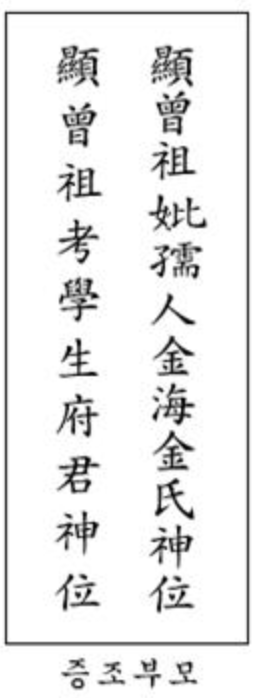 顯曾祖妣孺人金海金氏神位
顯曾祖考學生府君神位
증조부모